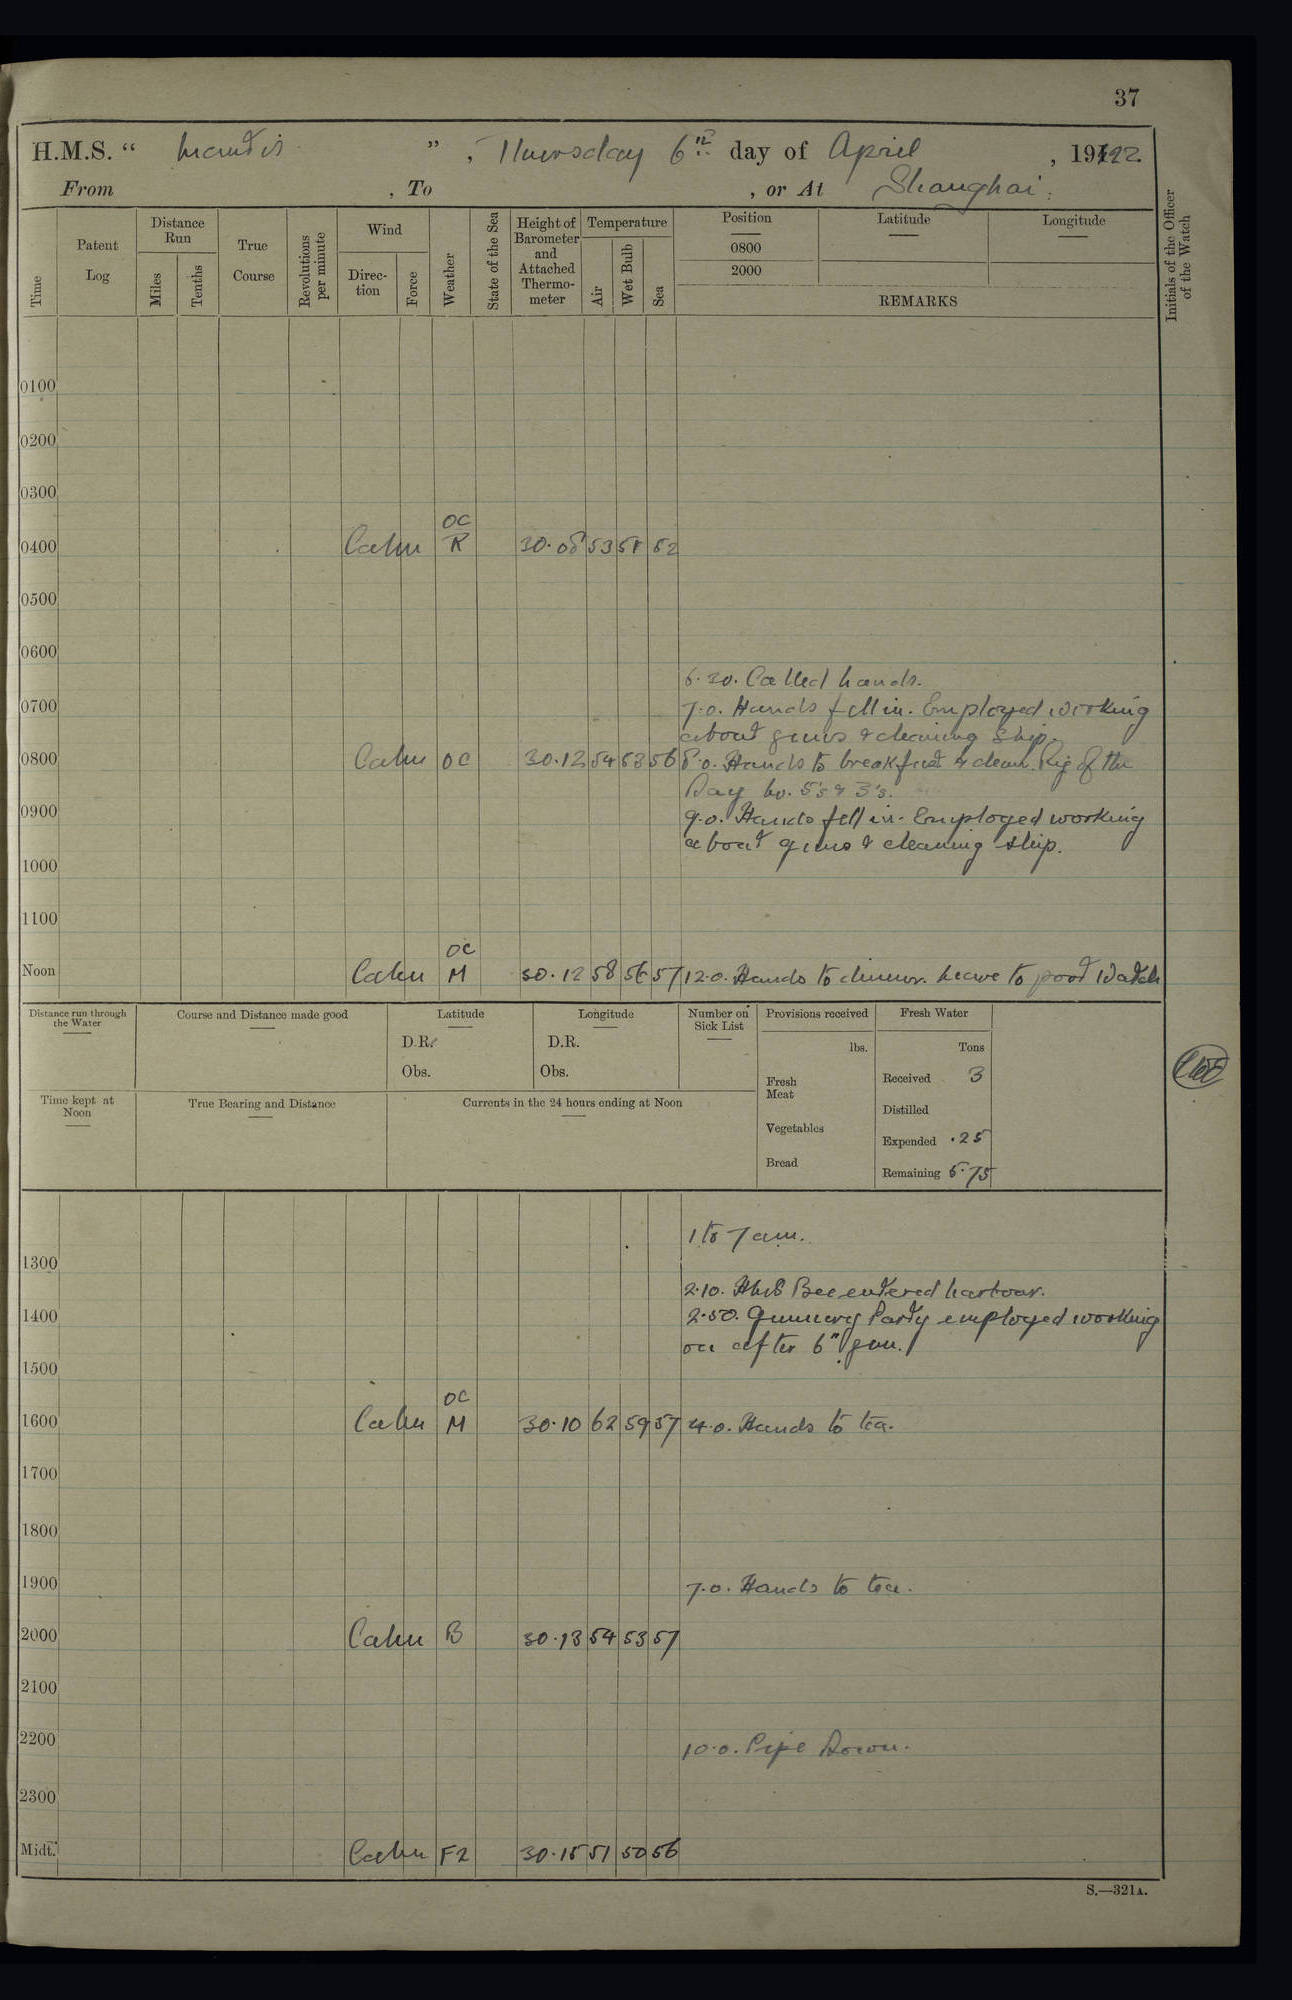 37
H.M.S. “ Mantis ” , Thursday 6th day of April , 1922
From , To , or At Shanghai.
Time
Patent Log
Distance Run
Miles
Tenths
True Course
Revolutions per minute
Wind
Direc- tion
Force
Weather
State of the Sea
Height of Barometer and Attached Thermo- meter
Temperature
Air
Wet Bulb
Sea
Position
0800
2000
Latitude
Longitude
REMARKS
Initials of the Officer of the Watch
0100
0200
0300
OC
0400 Calm R 30.08 53 51 52
0500
0600
6.30. Called hands.
0700 7.0. Hands fell in. Employed working
about guns & cleaning ship.
0800 Calm OC 30.12 54 53 56 8.0. Hands to breakfast & clean. Rig of the
Day No. 5's & 3's.
0900 9.0. Hands fell in. Employed working
about guns & cleaning ship.
1000
1100
OC
Noon Calm M 30.12 58 56 57 12.0. Hands to dinner. Leave to port Watch
Distance run through the Water
Course and Distance made good
Latitude
D.R.
Obs.
Longitude
D.R.
Obs.
Number on Sick List
Provisions received
lbs.
Fresh Meat
Vegetables
Bread
Fresh Water
Tons
Received 3
Distilled
Expended .25
Remaining 5.75
Time kept at Noon
True Bearing and Distance
Currents in the 24 hours ending at Noon
1 to 7 am.
1300
2.10. HMS Bee entered harbour.
1400 2.50. Gunnery Party employed working
on after 6" gun.
1500
OC
1600 Calm M 30.10 62 59 57 4.0. Hands to tea.
1700
1800
1900 7.0. Hands to tea.
2000 Calm B 30.13 54 53 57
2100
2200 10.0. Pipe Down.
2300
Midt. Calm F2 30.15 51 50 56
S.—321A.